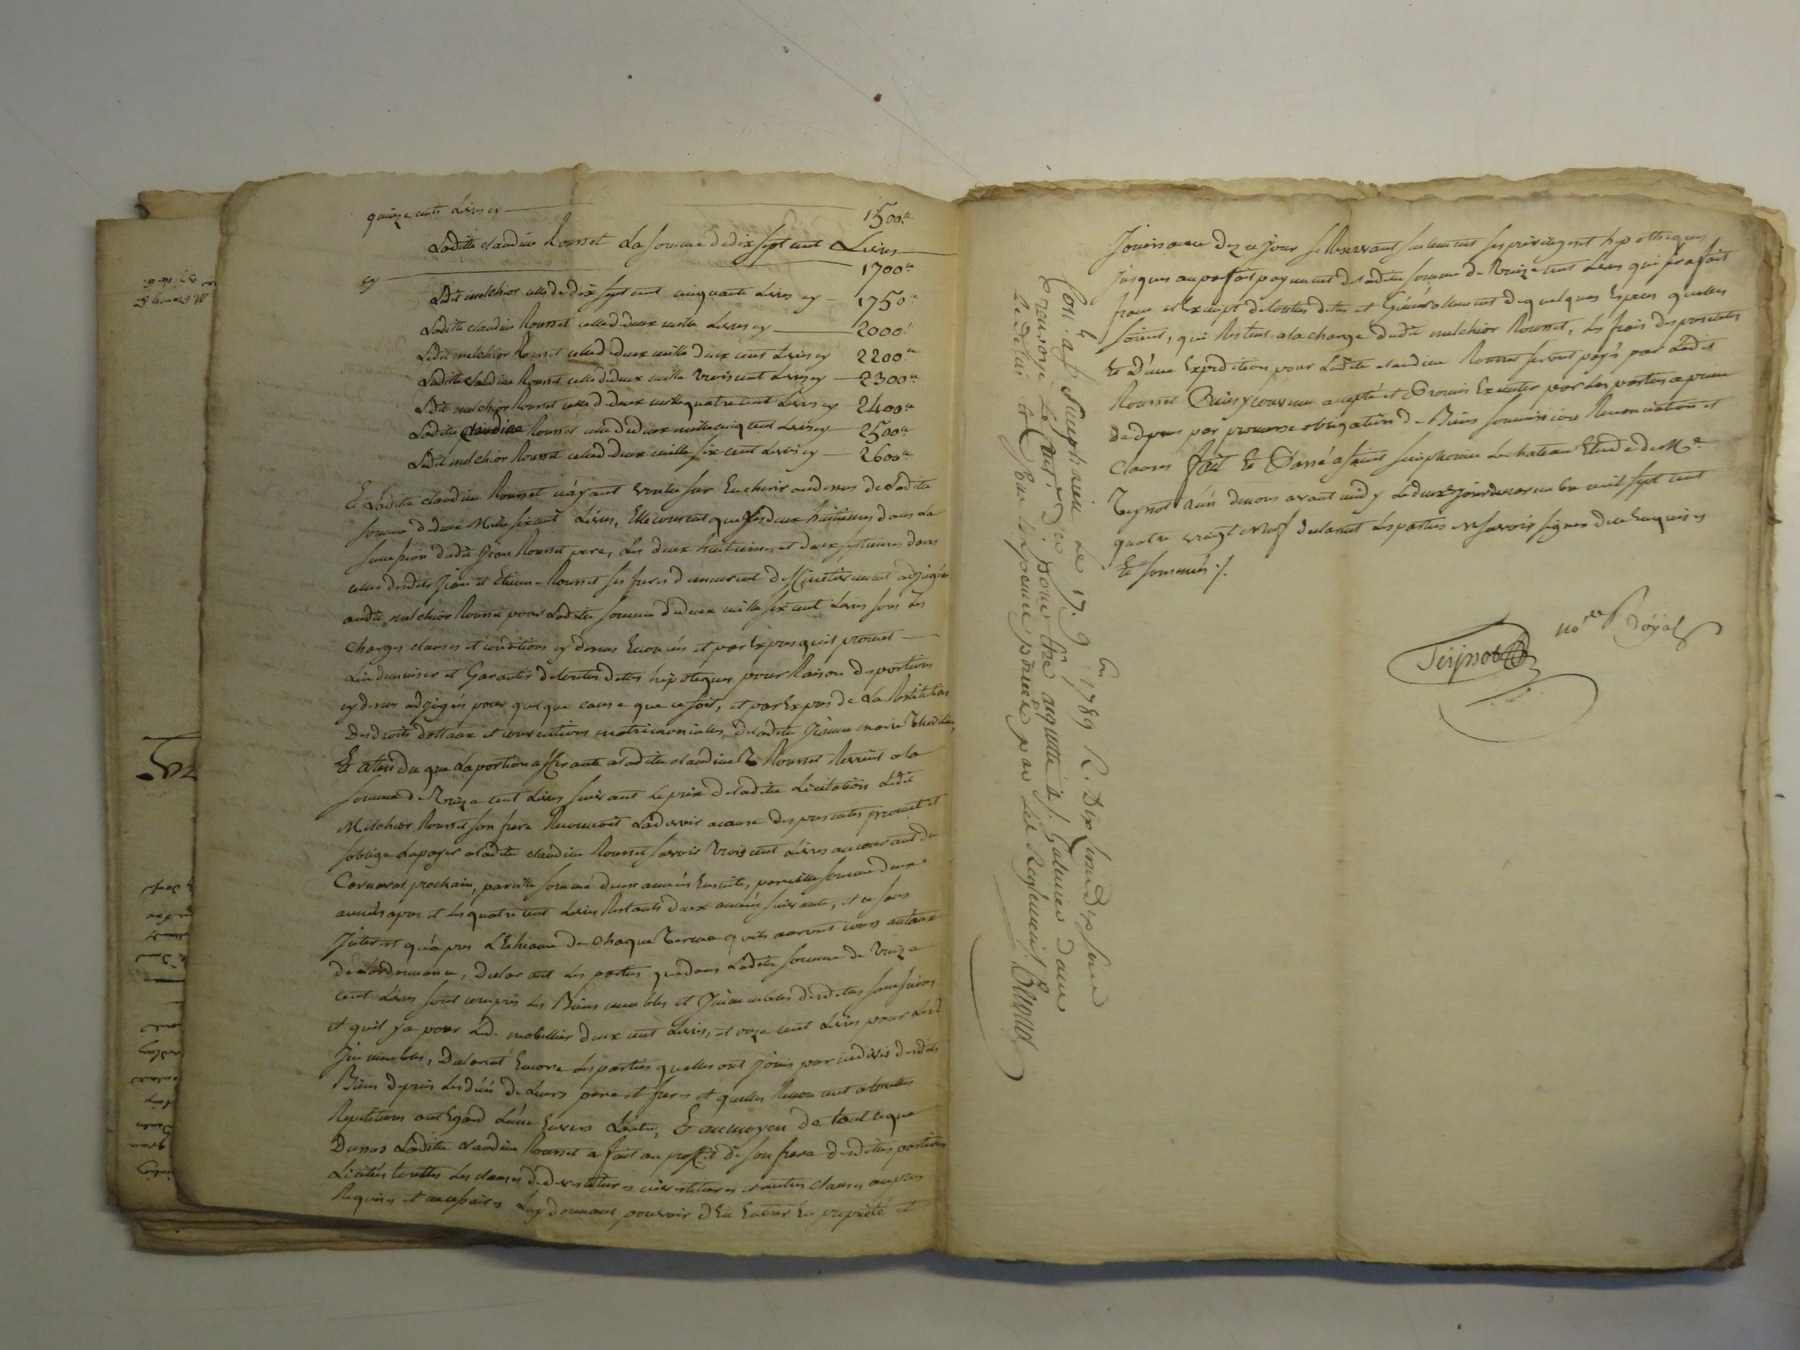 quinze cents Livres cy 1500ᵗᵗ
Ladite claudine Rousset La somme de dix sept cent Livres
cy 1700ᵗᵗ
Ledit melchior celle de dix sept cent cinquante Livres cy 1750ᵗᵗ
Ladite claudine Rousset celle de deux mille Livres cy 2000ᵗᵗ
Ledit melchior Rousset celle de deux mille deux cent Livres cy 2200ᵗᵗ
Ladite claudine Rousset celle de deux mille trois cent Livres cy 2300ᵗᵗ
Ledit melchior Rousset celle de deux mille quatre cent Livres cy 2400ᵗᵗ
Ladite claudine Rousset celle de deux mille cinq cent Livres cy 2500ᵗᵗ
Ledit melchior Rousset celle de deux mille six cent Livres cy 2600ᵗᵗ
Et Ladite claudine Rousset n'ayant voulu sur Encherir au dessus de Ladite
somme de deux Mille six cent Livres, Elle consent que ses deux huitiemes dans La
succession dudit Jean Rousset pere, Les deux huitiemes et deux septiemes dans
celles desdits Jean et Etienne Rousset ses freres demeurent deffinitivement adjugés
audit melchior Rousset pour Ladite somme de deux mille six cent Livres sous Les
charges clauses et conditions cy dessus Enoncées et par Exprès qu'il promet
L'indemniser et Garantir de toutes dettes hipoteques pour Raison des portions
cy dessus adjugées pour quelque cause que ce soit, et par Exprès de La Restitution
Des droits dottaux et conventions matrimonialles de Ladite Jeanne marie
Et attendu que La portion afferante a Ladite claudine Rousset Revient a la
somme de Treize cent Livres suivant Le prix de Ladite Licitation Ledit
Melchior Rousset son frere Reconnoit La devoir a cause des presentes promet et
s'oblige La payer a Ladite claudine Rousset savoir trois cent Livres au courant du
Carnaval prochain, pareille somme deux années Ensuite, pareille somme deux
années apres et Les quatre cent Livres Restants deux années suivante, et ce sans
Jnterest qu'apres L'Echeance de chaque Terme qu'ils auront cours au taux
de L'ordonnance, Declarant Les parties que dans Ladite somme de treize
cent Livres sont compris Les Biens meubles et Jmmeubles desdites successions
et qu'il y a pour Led. mobillier deux cent Livres, et onze cent Livres pour Lesd.
Jmmeubles, Declarent Encore Les parties qu'elles ont joüis par indivis desdits
Biens depuis Les décés de Leurs pere et freres et qu'elles Renoncent a touttes
Repetitions a cet Egard L'une Envers L'autre, Et au moyen de tout ce que
Dessus Ladite claudine Rousset a fait au proffit de son frere desdites portions
Licitées touttes Les clauses de devestitures investitures et autres clauses
Requises et necessaires Luy donnant pouvoir d'En Entrer En proprieté et
Jouissance dez ce jour se Reservant seulement ses privileges et hypotheques
jusques au parfait payement de Ladite somme de Treize cent Livres qui sera fait
franc et Exempt de toutes dettes et Généralement de quelques Especes quelles
soient, qui Restent a la charge dudit melchior Rousset, Les frais des presentes
Et d'une Expedition pour Ladite claudine Rousset seront payés par Ledit
Rousset Ainsy convenu accepté et Promis Executer par Les parties a peine
de depens par promesse obligation de Biens soumissions Renonciation et
clauses fait Et Passé a saint simphorien Le chateau Etude de Mᵉ
Teynot L'un de nous avant midy Le deux jour de novembre mil sept cent
quatre vingt Neuf declarant Les parties ne savoir signer de ce Enquises
Et sommés ./.
Teijnot noʳᵉ Royal
Con.ˡᵉ a Sᵗ Simphorien Le 17. 9ᵇʳᵉ 1789 R. Dix Livres dix sous
pour être acquitté a Sᵗ Galmier dans
Le delai et sous les peines prononcés par Led. Reglement.